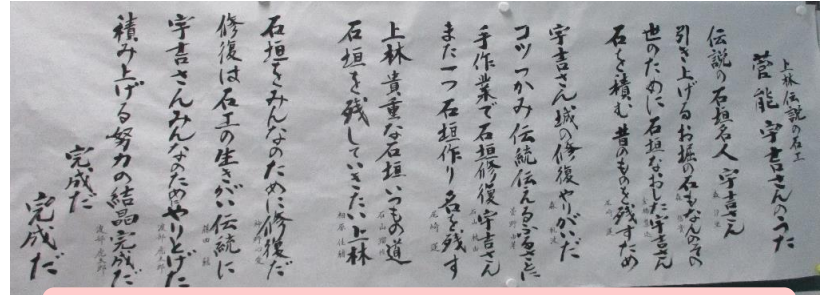 上林伝説の石工
菅能宇吉さんのうた
伝説の石垣名人 宇吉さん
引き上げるお掘の石もなんのその
世のために石垣なおした宇吉さん
石を積む、昔のものを残すため
宇吉さん城の修復やりがいだ
コツつかみ伝統伝えるふるさとに
手作業で石垣修復宇吉さん
また一つ石垣作り名を残す
尾崎 蓮
上林貴重な石垣いつもの道
石垣を残していきたい上林
相原 佳緒
石垣をみんなのために修復だ
修復は石工の生きがい伝統に
宇吉さんみんなのためにやりとげた
渡部 虎太郎
積み上げる努力の結晶完成だ
渡部 虎太郎
完成だ
完成だ